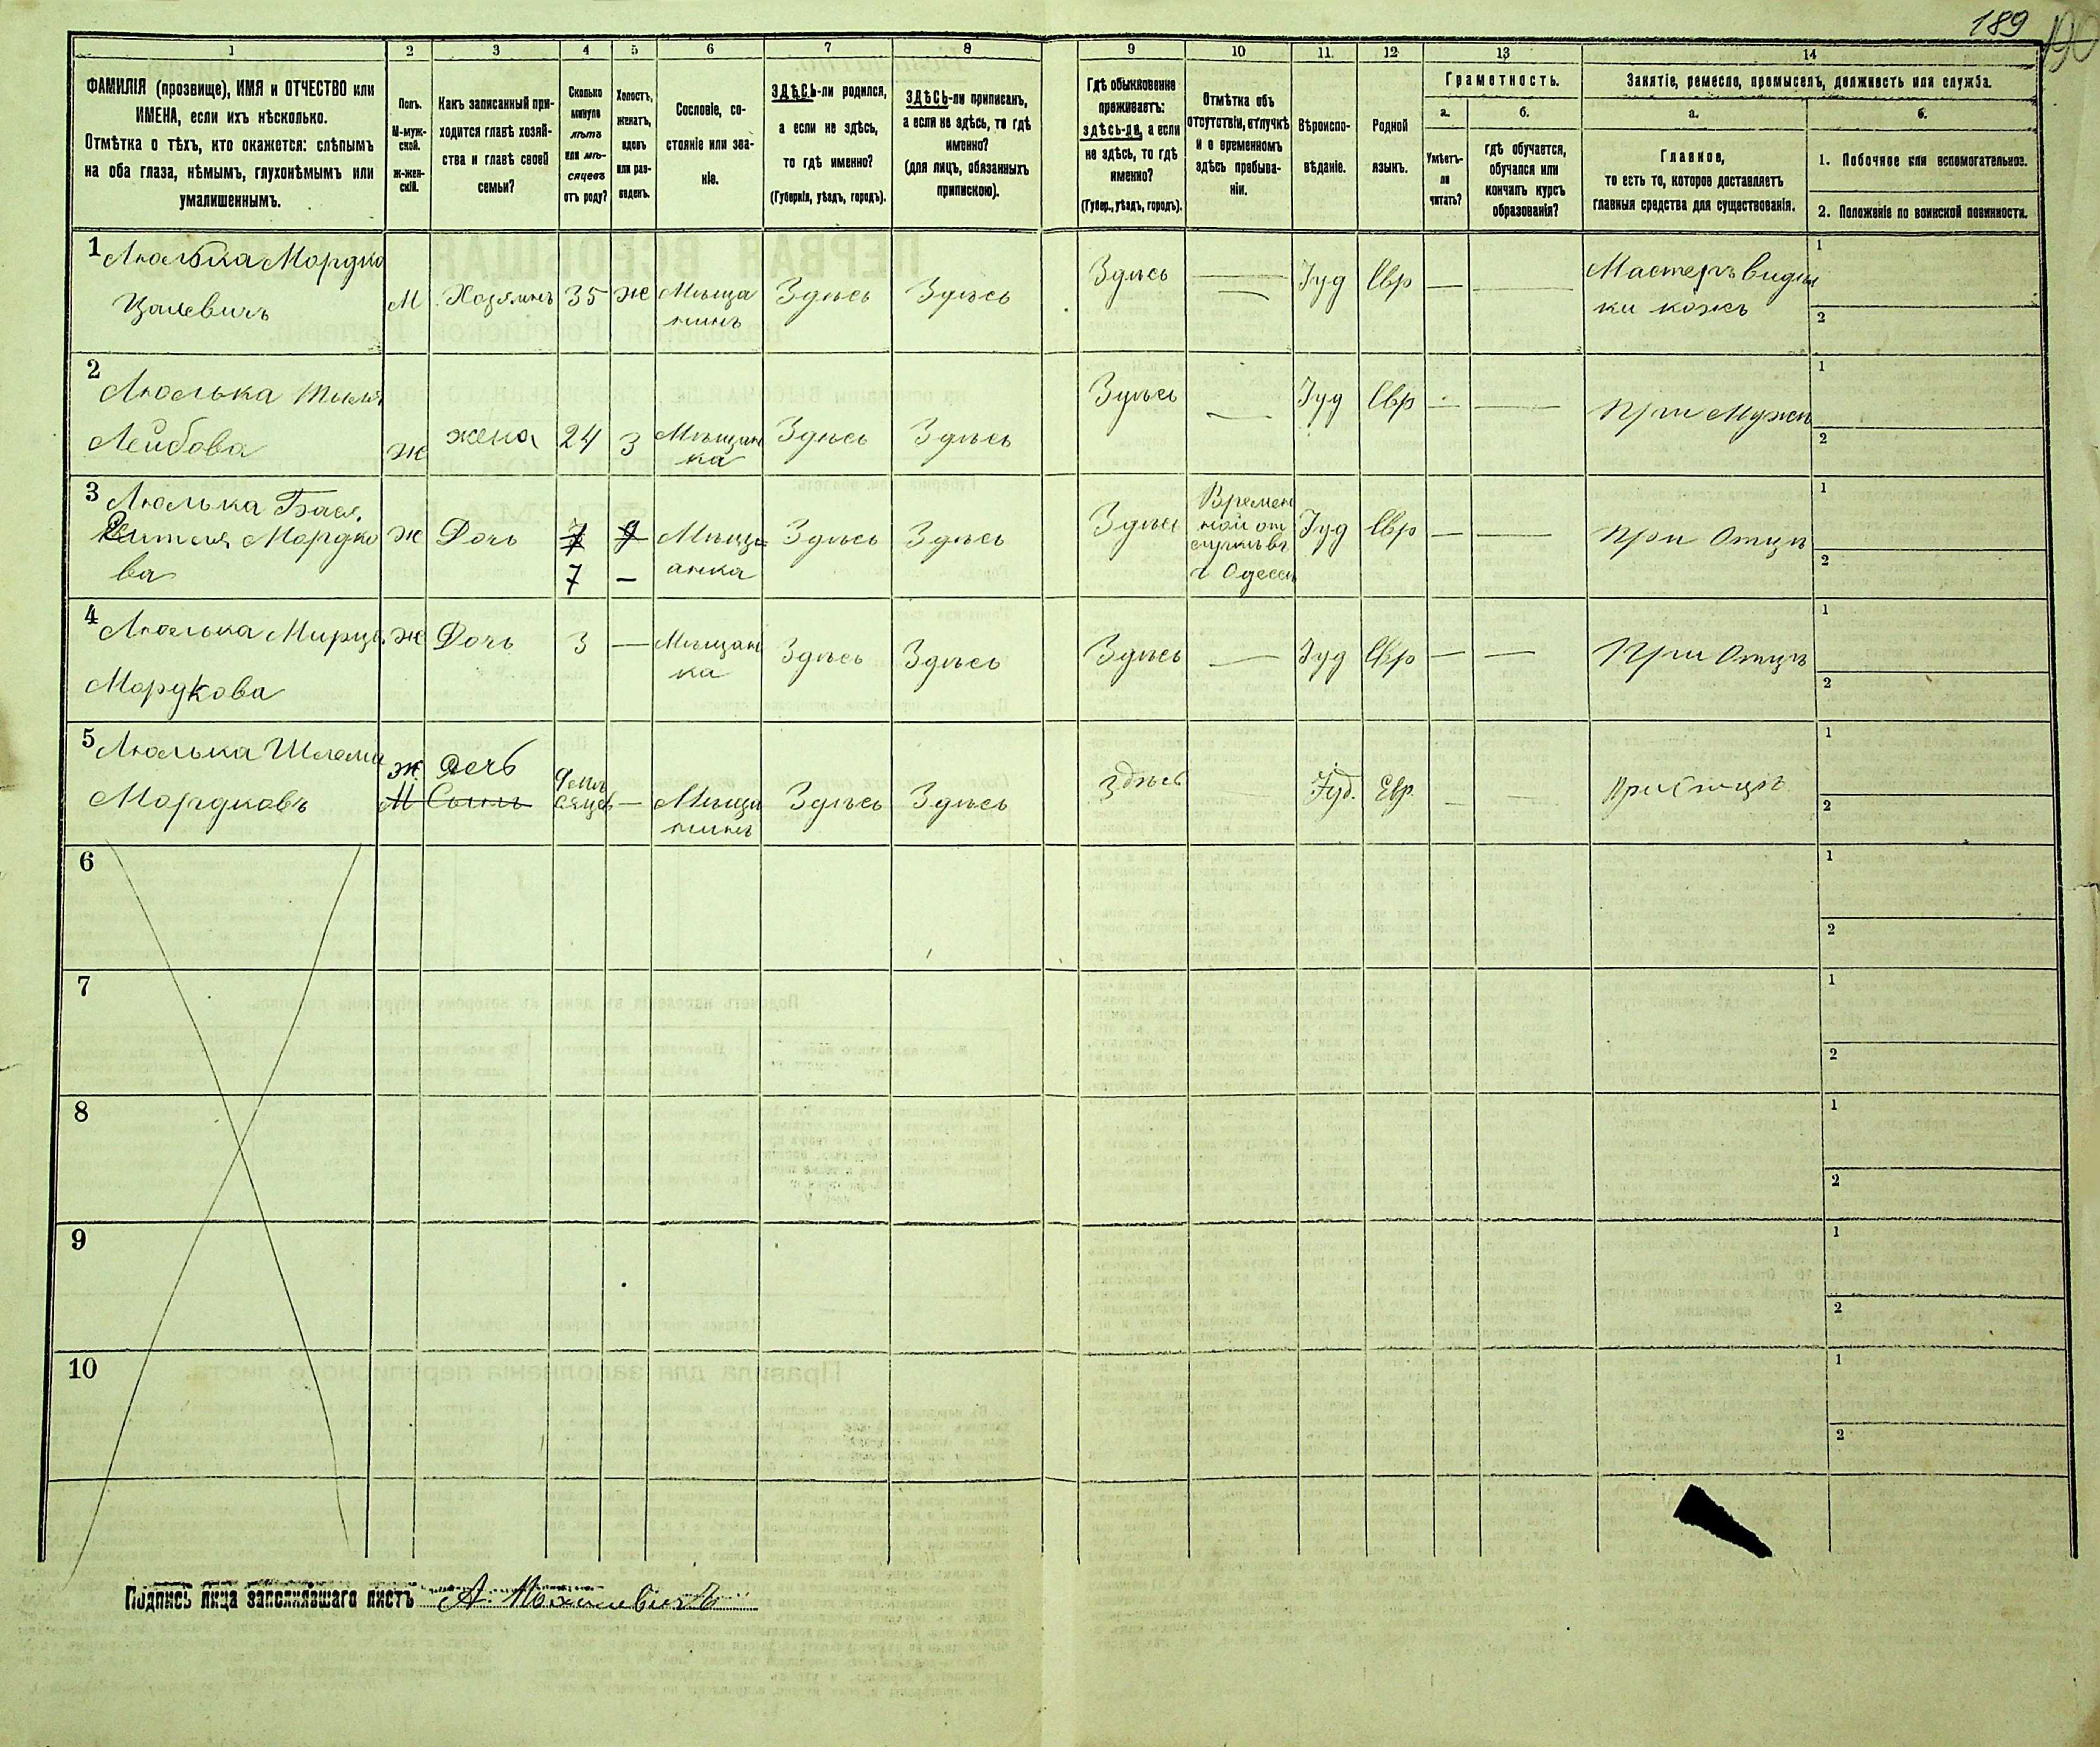 189
190
1 2 3 4 5 6 7 8 9 10 11. 12 13 14
ФАМИЛІЯ (прозвище), ИМЯ и ОТЧЕСТВО или
ИМЕНА, если ихъ нѣсколько.
Отмѣтка о тѣхъ, кто окажется: слѣпымъ
на оба глаза, нѣмымъ, глухонѣмымъ или
умалишеннымъ.
Полъ.
М-муж-
ской.
Ж-жен-
скій.
Какъ записанный при-
ходится главѣ хозяй-
ства и главѣ своей
семьи?
Сколько
минуло
лѣтъ
или мѣ-
сяцевъ
отъ роду?
Холостъ,
женатъ,
вдовъ
или раз-
веденъ.
Сословіе, со-
стояніе или зва-
ніе.
ЗДѢСЬ-ли родился,
а если не здѣсь,
то гдѣ именно?
(Губернія, уѣздъ, городъ).
ЗДѢСЬ-ли приписанъ,
а если не здѣсь, то гдѣ
именно?
(для лицъ, обязанныхъ
припискою).
Гдѣ обыкновенно
проживаетъ:
здѣсь-ли, а если
не здѣсь, то гдѣ
именно?
(Губер., уѣздъ, городъ).
Отмѣтка объ
отсутствіи, отлучкѣ
и о временномъ
здѣсь пребыва-
ніи.
Вѣроиспо-
вѣданіе.
Родной
языкъ.
Грамотность.
а.
Умѣетъ-
ли
читать?
б.
гдѣ обучается,
обучался или
кончилъ курсъ
образованія?
Занятіе, ремесло, промыселъ, должность или служба.
а.
Главное,
то есть то, которое доставляетъ
главныя средства для существованія.
б.
1. Побочное или вспомогательное.
2. Положеніе по воинской повинности.
1 Люлька Мордко
М Хозяинъ 35 ж Мѣща Здѣсь Здѣсь Здѣсь — Іуд Евр — — Мастеръ
нинъ
ки кожъ
1
2
2 Люлька
Лейбова ж жена 24 З Мѣщан Здѣсь Здѣсь Здѣсь — Іуд Евр — — При Мужѣ
ка
1
2
3 Люлька Бася
Мордко ж Дочь Мѣщ Здѣсь Здѣсь Здѣсь Времен Іуд Евр — — При Отцѣ
ва 7 — анка
ной от
лучкѣ въ
г Одессѣ
1
2
4 Люлька ж Дочь 3 — Мѣщан Здѣсь Здѣсь Здѣсь — Іуд Евр — — При Отцѣ
Мордкова ка
1
2
5 Люлька Шлема ж Дочь
Мордковъ М Сынъ — Мѣща Здѣсь Здѣсь здѣсь — Іуд. Евр. — — При Отцѣ
нинъ
1
2
6 1
2
7 1
2
8 1
2
9 1
2
10 1
2
Подпись лица заполнявшаго листъ А.